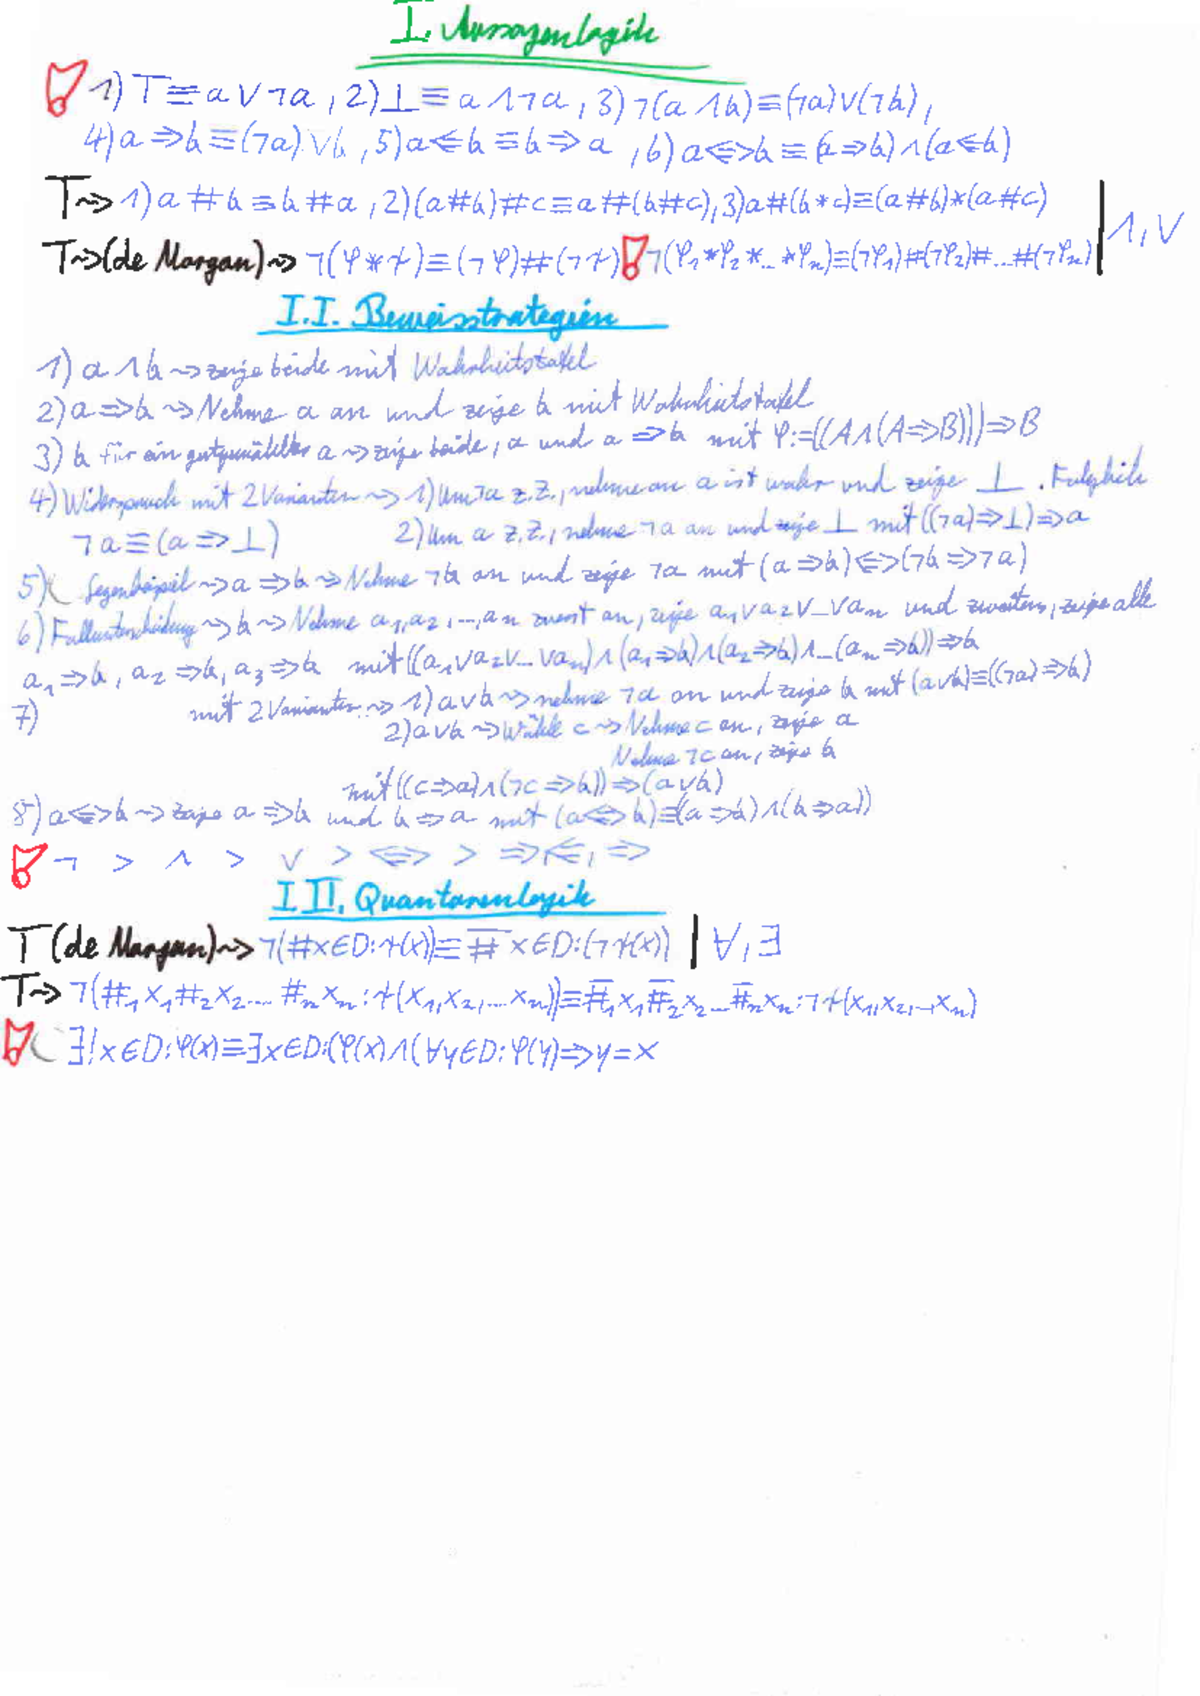 I. Aussagenlogik
1) T ≡ a ∨ ¬a , 2) ⊥ ≡ a ∧ ¬a , 3) ¬(a ∧ b) ≡ (¬a) ∨ (¬b) ,
4) a ⇒ b ≡ (¬a) ∨ b , 5) a ⇐ b ≡ b ⇒ a , 6) a ⇔ b ≡ (a ⇒ b) ∧ (a ⇐ b)
T ⇝ 1) a # b ≡ b # a , 2) (a # b) # c ≡ a # (b # c) , 3) a # (b * c) ≡ (a # b) * (a # c)
T ⇝ (de Morgan) ⇝ ¬(φ * ψ) ≡ (¬φ) # (¬ψ) ! ¬(φ₁ * φ₂ * ... * φₙ) ≡ (¬φ₁) # (¬φ₂) # ... # (¬φₙ) | ∧, ∨
I.I. Beweisstrategien
1) a ∧ b ⇝ zeige beide mit Wahrheitstafel
2) a ⇒ b ⇝ Nehme a an und zeige b mit Wahrheitstafel
3) b für ein gutgewähltes a ⇝ zeige beide, a und a ⇒ b mit φ := ((A ∧ (A ⇒ B))) ⇒ B
4) Widerspruch mit 2 Varianten ⇝ 1) Um ¬a z.Z., nehme an a ist wahr und zeige ⊥ .
¬a ≡ (a ⇒ ⊥) 2) Um a z.Z., nehme ¬a an und zeige ⊥ mit ((¬a) ⇒ ⊥) ⇒ a
5) Gegenbeispiel ⇝ a ⇒ b ⇝ Nehme ¬b an und zeige ¬a mit (a ⇒ b) ⇔ (¬b ⇒ ¬a)
6) Fallunterscheidung ⇝ b ⇝ Nehme a₁, a₂, ..., aₙ zuerst an, zeige a₁ ∨ a₂ ∨ ... ∨ aₙ und zweitens, zeige alle
a₁ ⇒ b, a₂ ⇒ b, a₃ ⇒ b mit ((a₁ ∨ a₂ ∨ ... ∨ aₙ) ∧ (a₁ ⇒ b) ∧ (a₂ ⇒ b) ∧ ... (aₙ ⇒ b)) ⇒ b
7) mit 2 Varianten ⇝ 1) a ∨ b ⇝ nehme ¬a an und zeige b mit (a ∨ b) ≡ ((¬a) ⇒ b)
2) a ∨ b ⇝ Wähle c ⇝ Nehme c an, zeige a
Nehme ¬c an, zeige b
mit ((c ⇒ a) ∧ (¬c ⇒ b)) ⇒ (a ∨ b)
8) a ⇔ b ⇝ zeige a ⇒ b und b ⇒ a mit (a ⇔ b) ≡ (a ⇒ b) ∧ (b ⇒ a))
! ¬ > ∧ > ∨ > ⇔ > ⇒, ⇐, ⇒
I.II. Quantorenlogik
T (de Morgan) ⇝ ¬(# x ∈ D: ψ(x)) ≡ #̅ x ∈ D: (¬ψ(x)) | ∀, ∃
T ⇝ ¬(#₁ x₁ #₂ x₂ ... #ₙ xₙ : ψ(x₁, x₂, ... xₙ)) ≡ #̅₁ x₁ #̅₂ x₂ ... #̅ₙ xₙ : ¬ψ(x₁, x₂, ..., xₙ)
! ∃! x ∈ D: φ(x) ≡ ∃ x ∈ D: (φ(x) ∧ (∀ y ∈ D: φ(y) ⇒ y = x